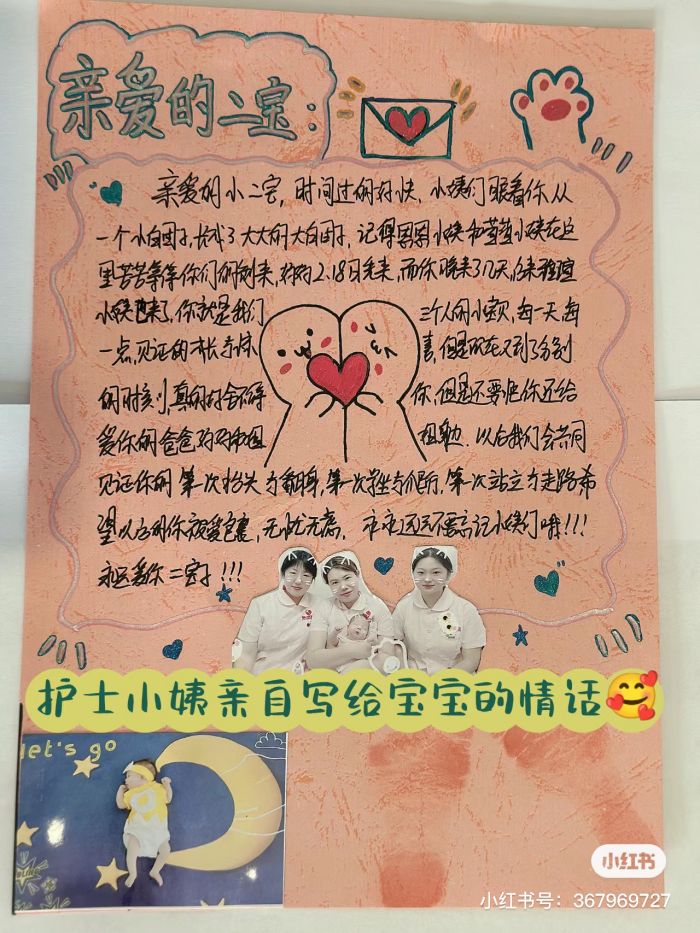 亲爱的二宝：
亲爱的小二宝，时间过的好快，小姨们眼看你从
一个小白团子，长成了大大的大白团子，记得恩恩小姨和萱萱小姨在这
里苦苦等待你们的到来，栋栋2.18日先来，而你晚来了几天，后来
小姨也来了，你就是我们三个人的小宝贝，每一天，每
一点，见证的成长与惊喜，但是现在又到了分别
的时刻，真的好舍不得你，但是还要把你还给
爱你的爸爸妈妈
以后我们会共同
见证你的第一次抬头与翻身，第一次坐与爬行，第一次站立与走路，希
望以后的你被爱包裹，无忧无虑，永永远远不要忘记小姨们哦!!!
永远爱你二宝!!!
护士小姨亲自写给宝宝的情话
let's go
小红书
小红书号：367969727